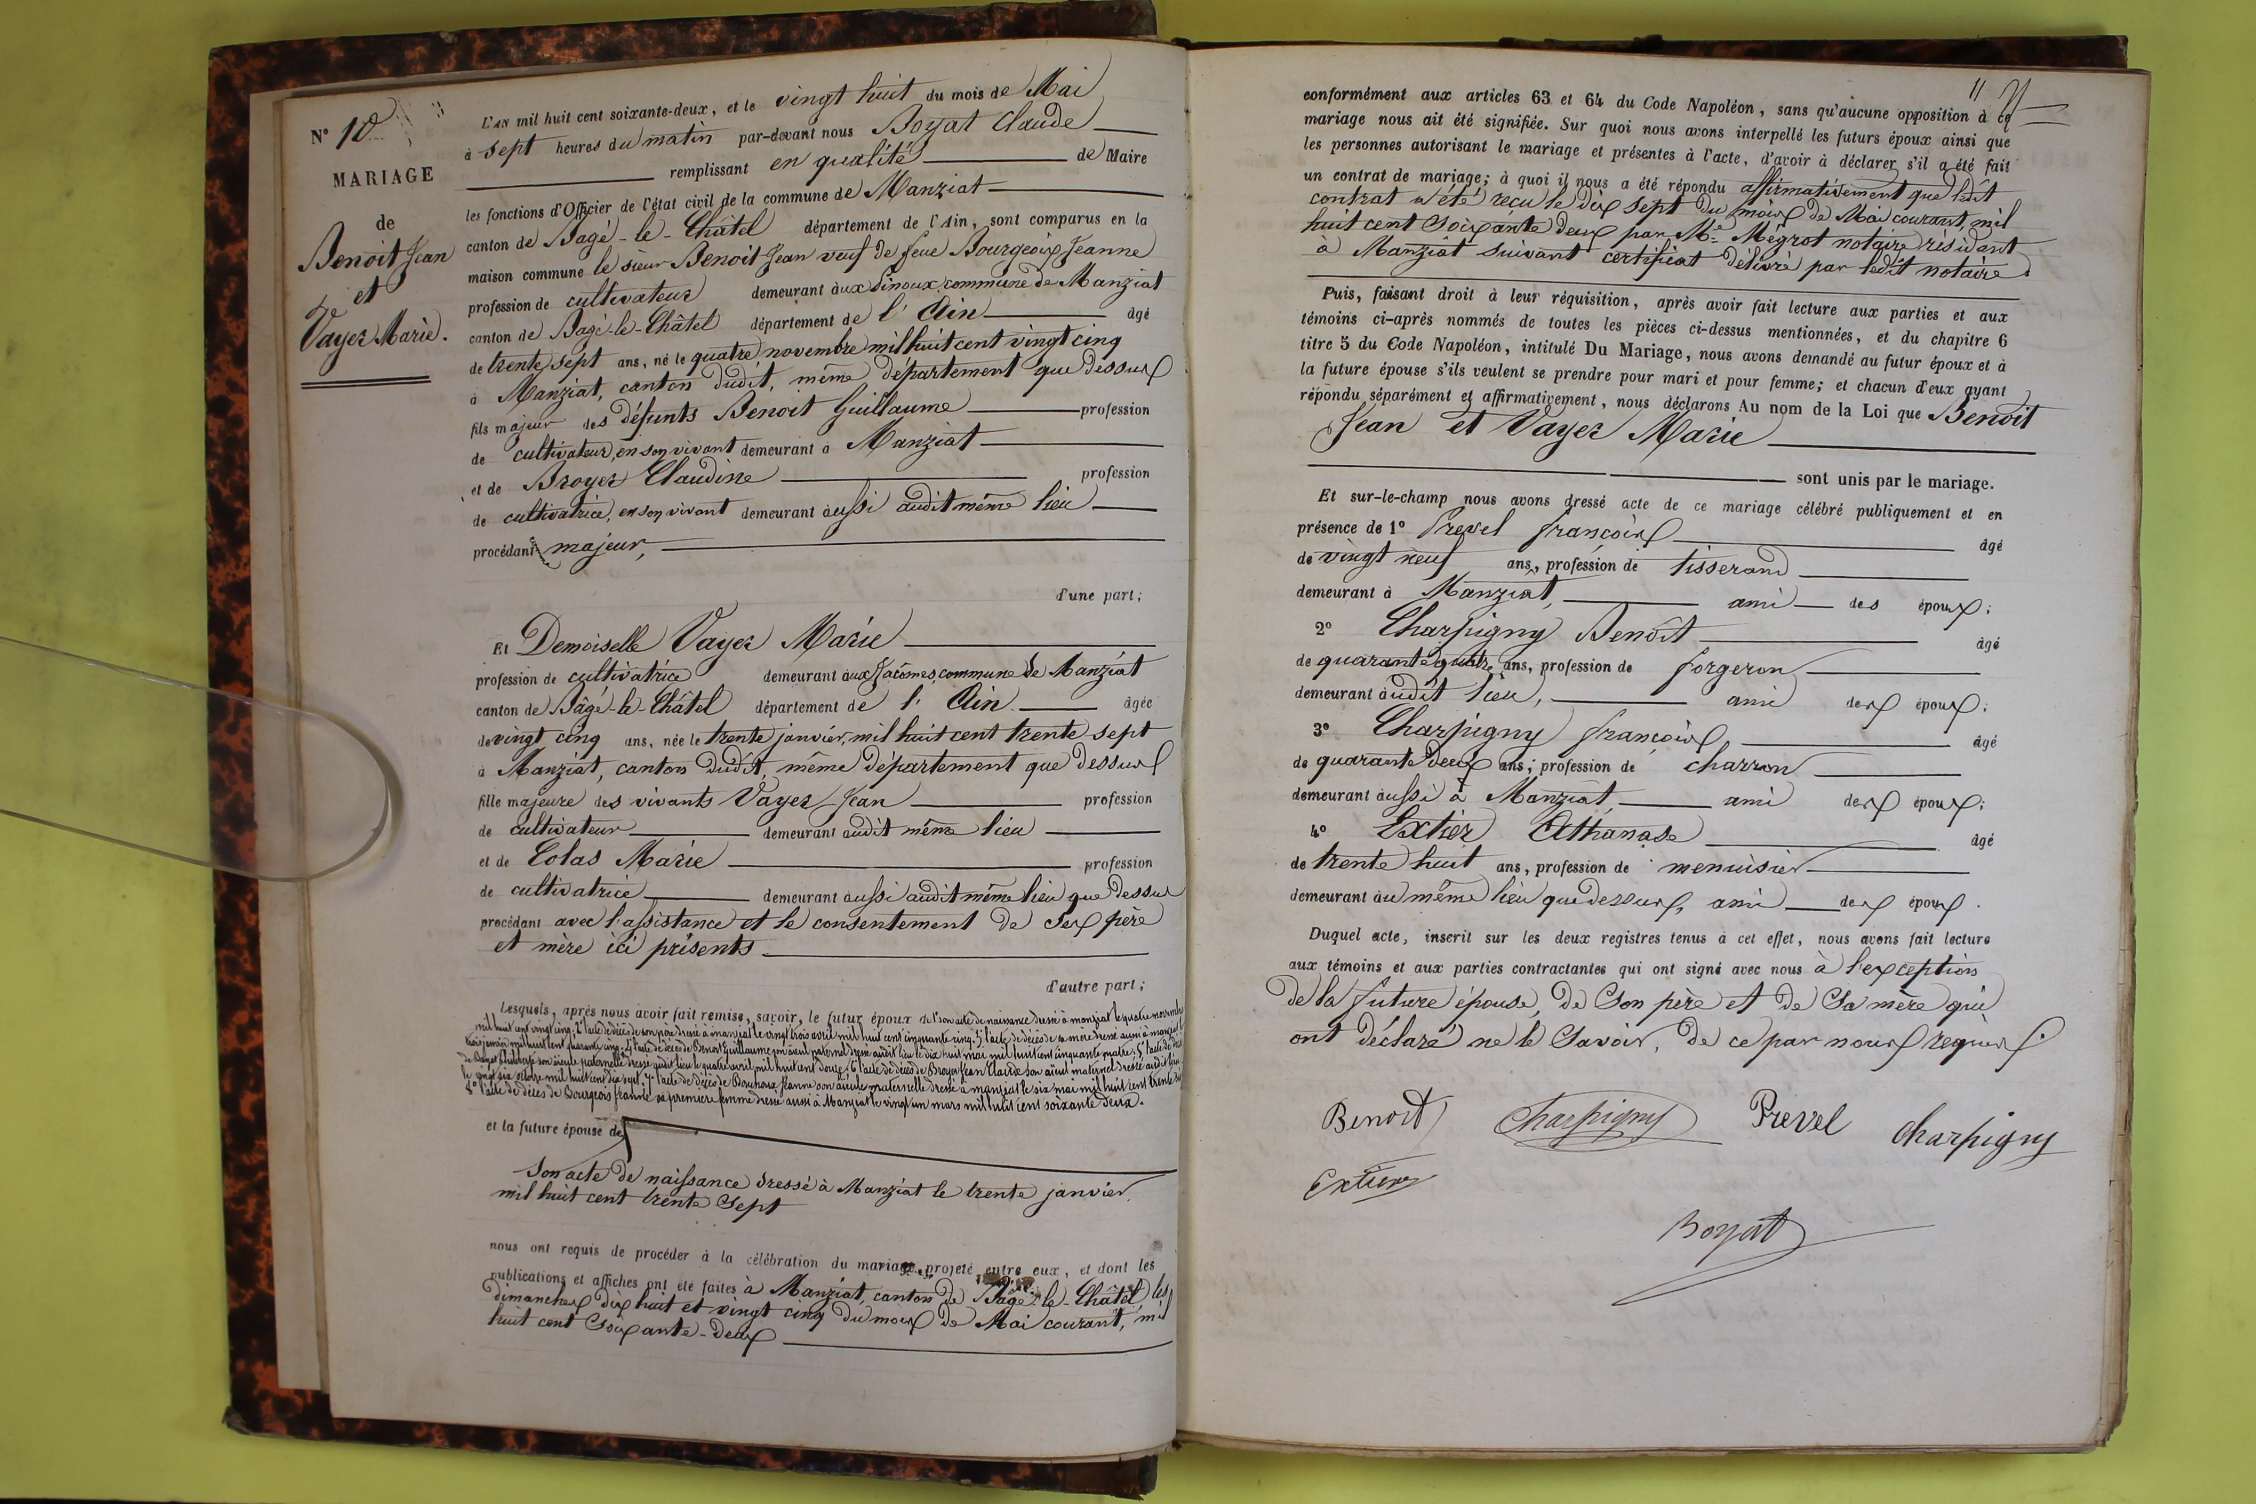 N° 10
MARIAGE
de
Benoit Jean
et
Vayer Marie.
L'AN mil huit cent soixante-deux, et le vingt huit du mois de Mai
à sept heures du matin par-devant nous Boyat Claude
remplissant en qualité de Maire
les fonctions d'Officier de l'état civil de la commune de Manziat
canton de Bagé-le-Châtel département de l'Ain, sont comparus en la
maison commune le sieur Benoit Jean veuf de feue Bourgeois Jeanne
profession de cultivateur demeurant aux Dinoux, commune de Manziat
canton de Bagé-le-Châtel département de l'Ain âgé
de trente sept ans, né le quatre novembre mil huit cent vingt cinq
à Manziat, canton dudit, même département que dessus
fils majeur des défunts Benoit Guillaume profession
de cultivateur, en son vivant demeurant à Manziat
et de Broyer Claudine profession
de cultivatrice, en son vivant demeurant aussi audit même lieu
procédant majeur,
d'une part;
Et Demoiselle Vayer Marie
profession de cultivatrice demeurant aux Jacômes, commune de Manziat
canton de Bâgé-le-Châtel département de l'Ain âgée
de vingt cinq ans, née le trente janvier, mil huit cent trente sept
à Manziat, canton dudit, même département que dessus
fille majeure des vivants Vayer Jean profession
de cultivateur demeurant audit même lieu
et de Colas Marie profession
de cultivatrice demeurant aussi audit même lieu que dessus
procédant avec l'assistance et le consentement de ses père
et mère ici présents
d'autre part;
Lesquels, après nous avoir fait remise, savoir, le futur époux de 1° son acte de naissance dressé à manziat le quatre novembre
mil huit cent vingt cinq. 2° l'acte de décès de son père dressé à manziat le vingt trois avril mil huit cent cinquante cinq. 3° l'acte de décès de sa mère dressé aussi à manziat le
trois janvier mil huit cent quarante cinq. 4° l'acte de décès de Benoit Guillaume son aïeul paternel dressé audit lieu le dix huit mai mil huit cent cinquante quatre; 5° l'acte de décès
de son aïeule paternelle dressé audit lieu le quatre avril mil huit cent douze; 6° l'acte de décès de Broyer Jean Claude son aïeul maternel dressé audit lieu
le vingt six octobre mil huit cent dix sept. 7° l'acte de décès de Bouchoux Jeanne son aïeule maternelle dressé à manziat le six mai mil huit cent trente
8° l'acte de décès de Bourgeois Jeanne sa première femme dressé aussi à Manziat le vingt un mars mil huit cent soixante deux.
et la future épouse de
son acte de naissance dressé à Manziat le trente janvier
mil huit cent trente sept
nous ont requis de procéder à la célébration du mariage projeté entre eux, et dont les
publications et affiches ont été faites à Manziat, canton de Bagé-le-Châtel, les
dimanches dix huit et vingt cinq du mois de Mai courant, mil
huit cent soixante-deux
11
conformément aux articles 63 et 64 du Code Napoléon, sans qu'aucune opposition à ce
mariage nous ait été signifiée. Sur quoi nous avons interpellé les futurs époux ainsi que
les personnes autorisant le mariage et présentes à l'acte, d'avoir à déclarer s'il a été fait
un contrat de mariage; à quoi il nous a été répondu affirmativement que ledit
contrat a été reçu le dix sept du mois de Mai courant, mil
huit cent soixante deux par Me Mégrot notaire résidant
à Manziat suivant certificat délivré par ledit notaire
Puis, faisant droit à leur réquisition, après avoir fait lecture aux parties et aux
témoins ci-après nommés de toutes les pièces ci-dessus mentionnées, et du chapitre 6
titre 5 du Code Napoléon, intitulé Du Mariage, nous avons demandé au futur époux et à
la future épouse s'ils veulent se prendre pour mari et pour femme; et chacun d'eux ayant
répondu séparément et affirmativement, nous déclarons Au nom de la Loi que Benoit
Jean et Vayer Marie
sont unis par le mariage.
Et sur-le-champ nous avons dressé acte de ce mariage célébré publiquement et en
présence de 1° Prevel françois âgé
de vingt neuf ans, profession de tisserand
demeurant à Manziat, ami des époux;
2° Charpigny Benoît âgé
de quarante quatre ans, profession de forgeron
demeurant audit lieu, ami des époux;
3° Charpigny françois, âgé
de quarante deux ans; profession de charron
demeurant aussi à Manziat, ami des époux;
4° Extier Athanase âgé
de trente huit ans, profession de menuisier
demeurant au même lieu que dessus, ami des époux.
Duquel acte, inscrit sur les deux registres tenus à cet effet, nous avons fait lecture
aux témoins et aux parties contractantes qui ont signé avec nous à l'exception
de la future épouse, de son père et de sa mère qui
ont déclaré ne le savoir, de ce par nous requis.
Benoit Charpigny Prevel Charpigny
Extier
Boyat